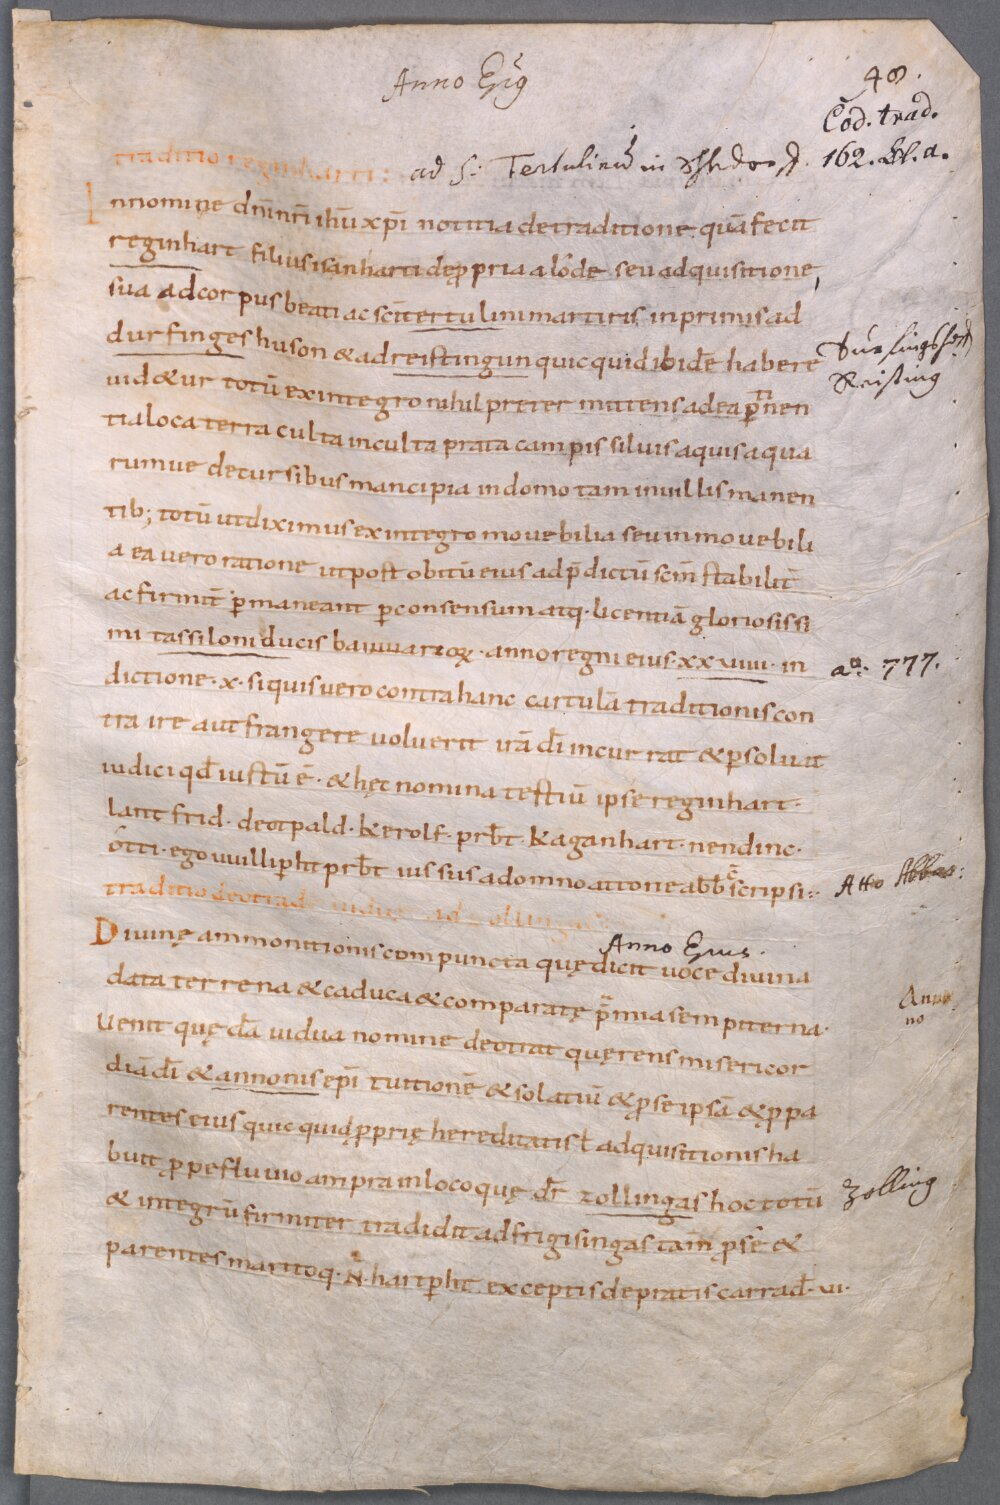 Anno Eiꝰ
48.
Cod. trad.
162. a.
traditio reginharti:
ad S: Tertulinū in
In nomine dn̄i nr̄i ihū xp̄i notitia de traditione quā fecit
reginhart filius isanharti de ꝓpria alode seu adquisitione,
sua ad corpus beati ac sc̄i tertulini martiris inprimis ad
durfinges huson & ad reistingun quicquid ibidē habere
uid&ur totū ex integro nihil preter mittens ad ea ꝑtinen
tia loca terra culta inculta prata campis siluis aquis aqua
rumue decursibus mancipia in domo tam in uillis manen
tib; totū ut diximus ex integro mouebilia seu inmouebili
a ea uero ratione ut post obitū eius ad p̄dictū sc̄m stabilit̄
ac firmit̄ ꝑmaneant ꝑ consensum atq· licentiā gloriosissi
mi tassiloni ducis bauuarioꝝ· anno regni eius· xxuiiii· in
dictione· x· si quis uero contra hanc cartulā traditionis con
tra ire aut frangere uoluerit irā dī incurrat & ꝑsoluat
iudici qđ iustū ē· & hęc nomina testiū ipse reginhart·
lantfrid· deotpald· kerolf· prb̄t· kaganhart· nendinc·
otti· ego uuilliꝑht prb̄t iussus a domno attone abb̄ scripsi:·
Dürfingsh
Reisting
aᵒ: 777.
Atto Abbas:
traditio deotrade uidue ad zollingas
Anno Eius.
Diuinę ammonitionis compuncta quę dicit uoce diuina
data terrena & caduca & comparatę p̄mia sempiterna·
Uenit quę dā uidua nomine deotrat quęrens misericor
diā dī & annonis ep̄i tuitionē & solatiū & ꝓ se ipsā & ꝓ pa
rentes eius quicquid ꝓprię hereditatis ł adquisitionis ha
buit ꝓpe fluuio ampra in loco quę dr̄ zollingas hoc totū
& integrū firmiter tradidit ad frigisingas tam̄ ꝓ se &
parentes maritoq· N· hartꝑht exceptis de pratis carrad̄· ui·
Anno
no
Zolling